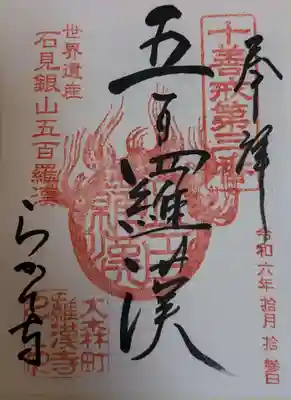 奉拝
令和六年 拾月 拾參日
十善戒第三
五百羅漢
世界遺産
石見銀山五百羅漢
大森町
羅漢寺
らかん寺